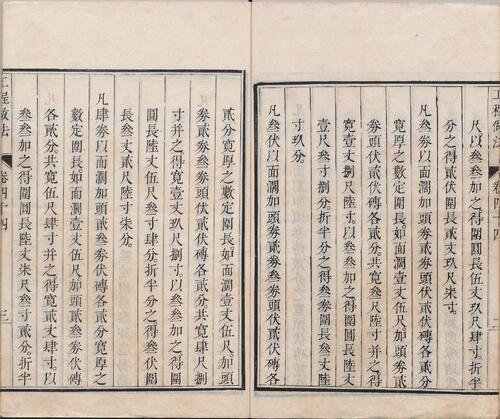 工程做法 卷四十四 二
丈捌尺以叁叁加之得圍圓長伍丈玖尺肆寸折半
分之得貳伏圍長貳丈玖尺柒寸
凡叁券以面濶加頭券貳券頭伏貳伏磚各貳分
寬厚之數定圍長如面濶壹丈伍尺加頭券貳
券頭伏貳伏磚各貳分共寬叁尺陸寸并之得
寬壹丈捌尺陸寸以叁叁加之得圍圓長陸丈
壹尺叁寸捌分折半分之得叁券圍長叁丈零陸
寸玖分
凡叁伏以面濶加頭券貳券叁券頭伏貳伏磚各
貳分寬厚之數定圍長如面濶壹丈伍尺加頭
券貳券叁券頭伏貳伏磚各貳分共寬肆尺捌
寸并之得寬壹丈玖尺捌寸以叁叁加之得圍
圓長陸丈伍尺叁寸肆分折半分之得叁伏圍
長叁丈貳尺陸寸柒分
凡肆券以面濶加頭貳叁券伏磚各貳分寬厚之
數定圍長如面濶壹丈伍尺加頭貳叁券伏磚
各貳分共寬伍尺肆寸并之得寬貳丈肆寸以
叁叁加之得圍圓長陸丈柒尺叁寸貳分折半
工程做法 卷四十四 三